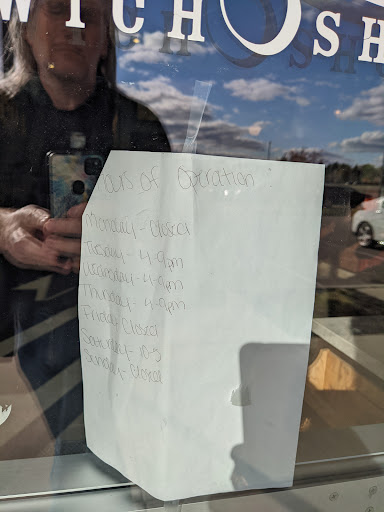 WICH SH
Hours of Operation:
Monday - Closed
Tuesday - 4-9pm
Wednesday - 4-9pm
Thursday - 4-9pm
Friday - Closed
Saturday - 10-3
Sunday - Closed